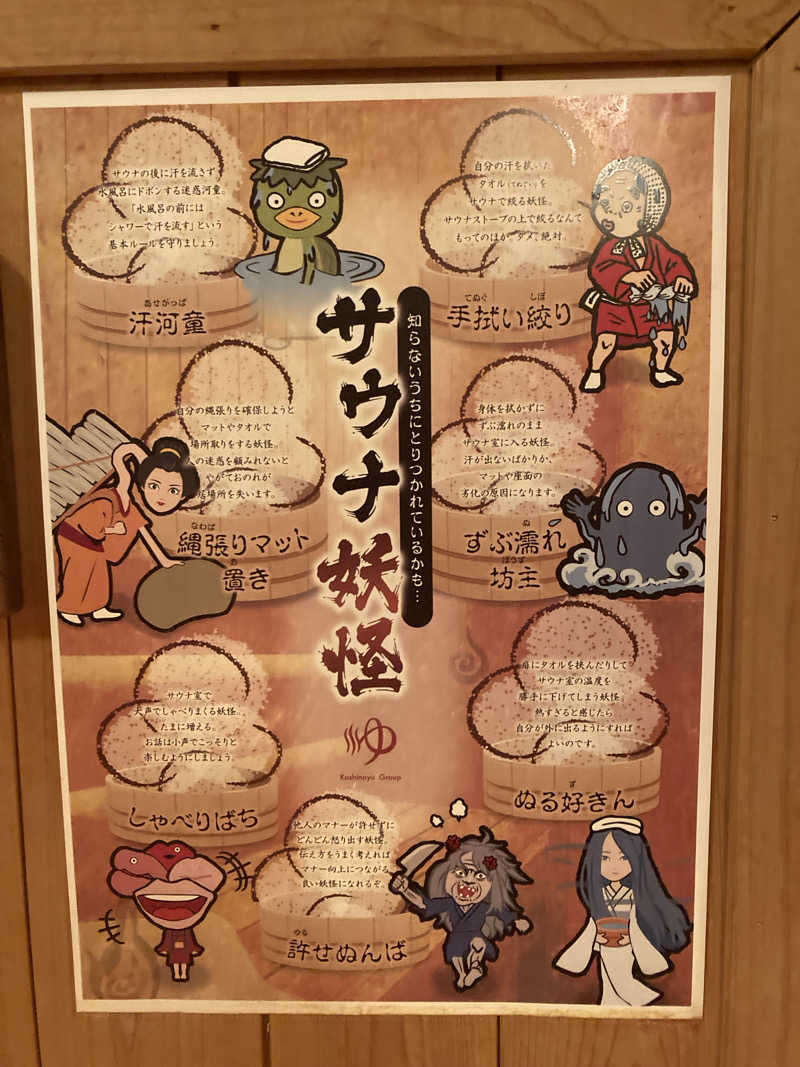 サウナ妖怪
知らないうちにとりつかれているかも…
サウナの後に汗を流さず
水風呂にドボンする迷惑河童。
「水風呂の前には
シャワーで汗を流す」という
基本ルールを守りましょう。
あせがっぱ
汗河童
自分の汗を拭いた
タオル(てぬぐい)を
サウナで絞る妖怪。
サウナストーブの上で絞るなんて
もってのほか、ダメ、絶対。
てぬぐ しぼ
手拭い絞り
自分の縄張りを確保しようと
マットやタオルで
場所取りをする妖怪。
人の迷惑を顧みれないと
やがておのれが
居場所を失います。
なわば
縄張りマット
お
置き
身体を拭かずに
ずぶ濡れのまま
サウナ室に入る妖怪。
汗が出ないばかりか、
マットや座面の
劣化の原因になります。
ぬ
ずぶ濡れ
ぼうず
坊主
サウナ室で
大声でしゃべりまくる妖怪。
たまに増える。
お話は小声でこっそりと
楽しむようにしましょう。
しゃべりばち
扉にタオルを挟んだりして
サウナ室の温度を
勝手に下げてしまう妖怪。
熱すぎると感じたら
自分が外に出るようにすれば
よいのです。
ず
ぬる好きん
他人のマナーが許せずに
どんどん怒り出す妖怪。
伝え方をうまく考えれば
マナー向上につながる
良い妖怪になれるぞ。
ゆる
許せぬんば
ゆ
Koshinoyu Group